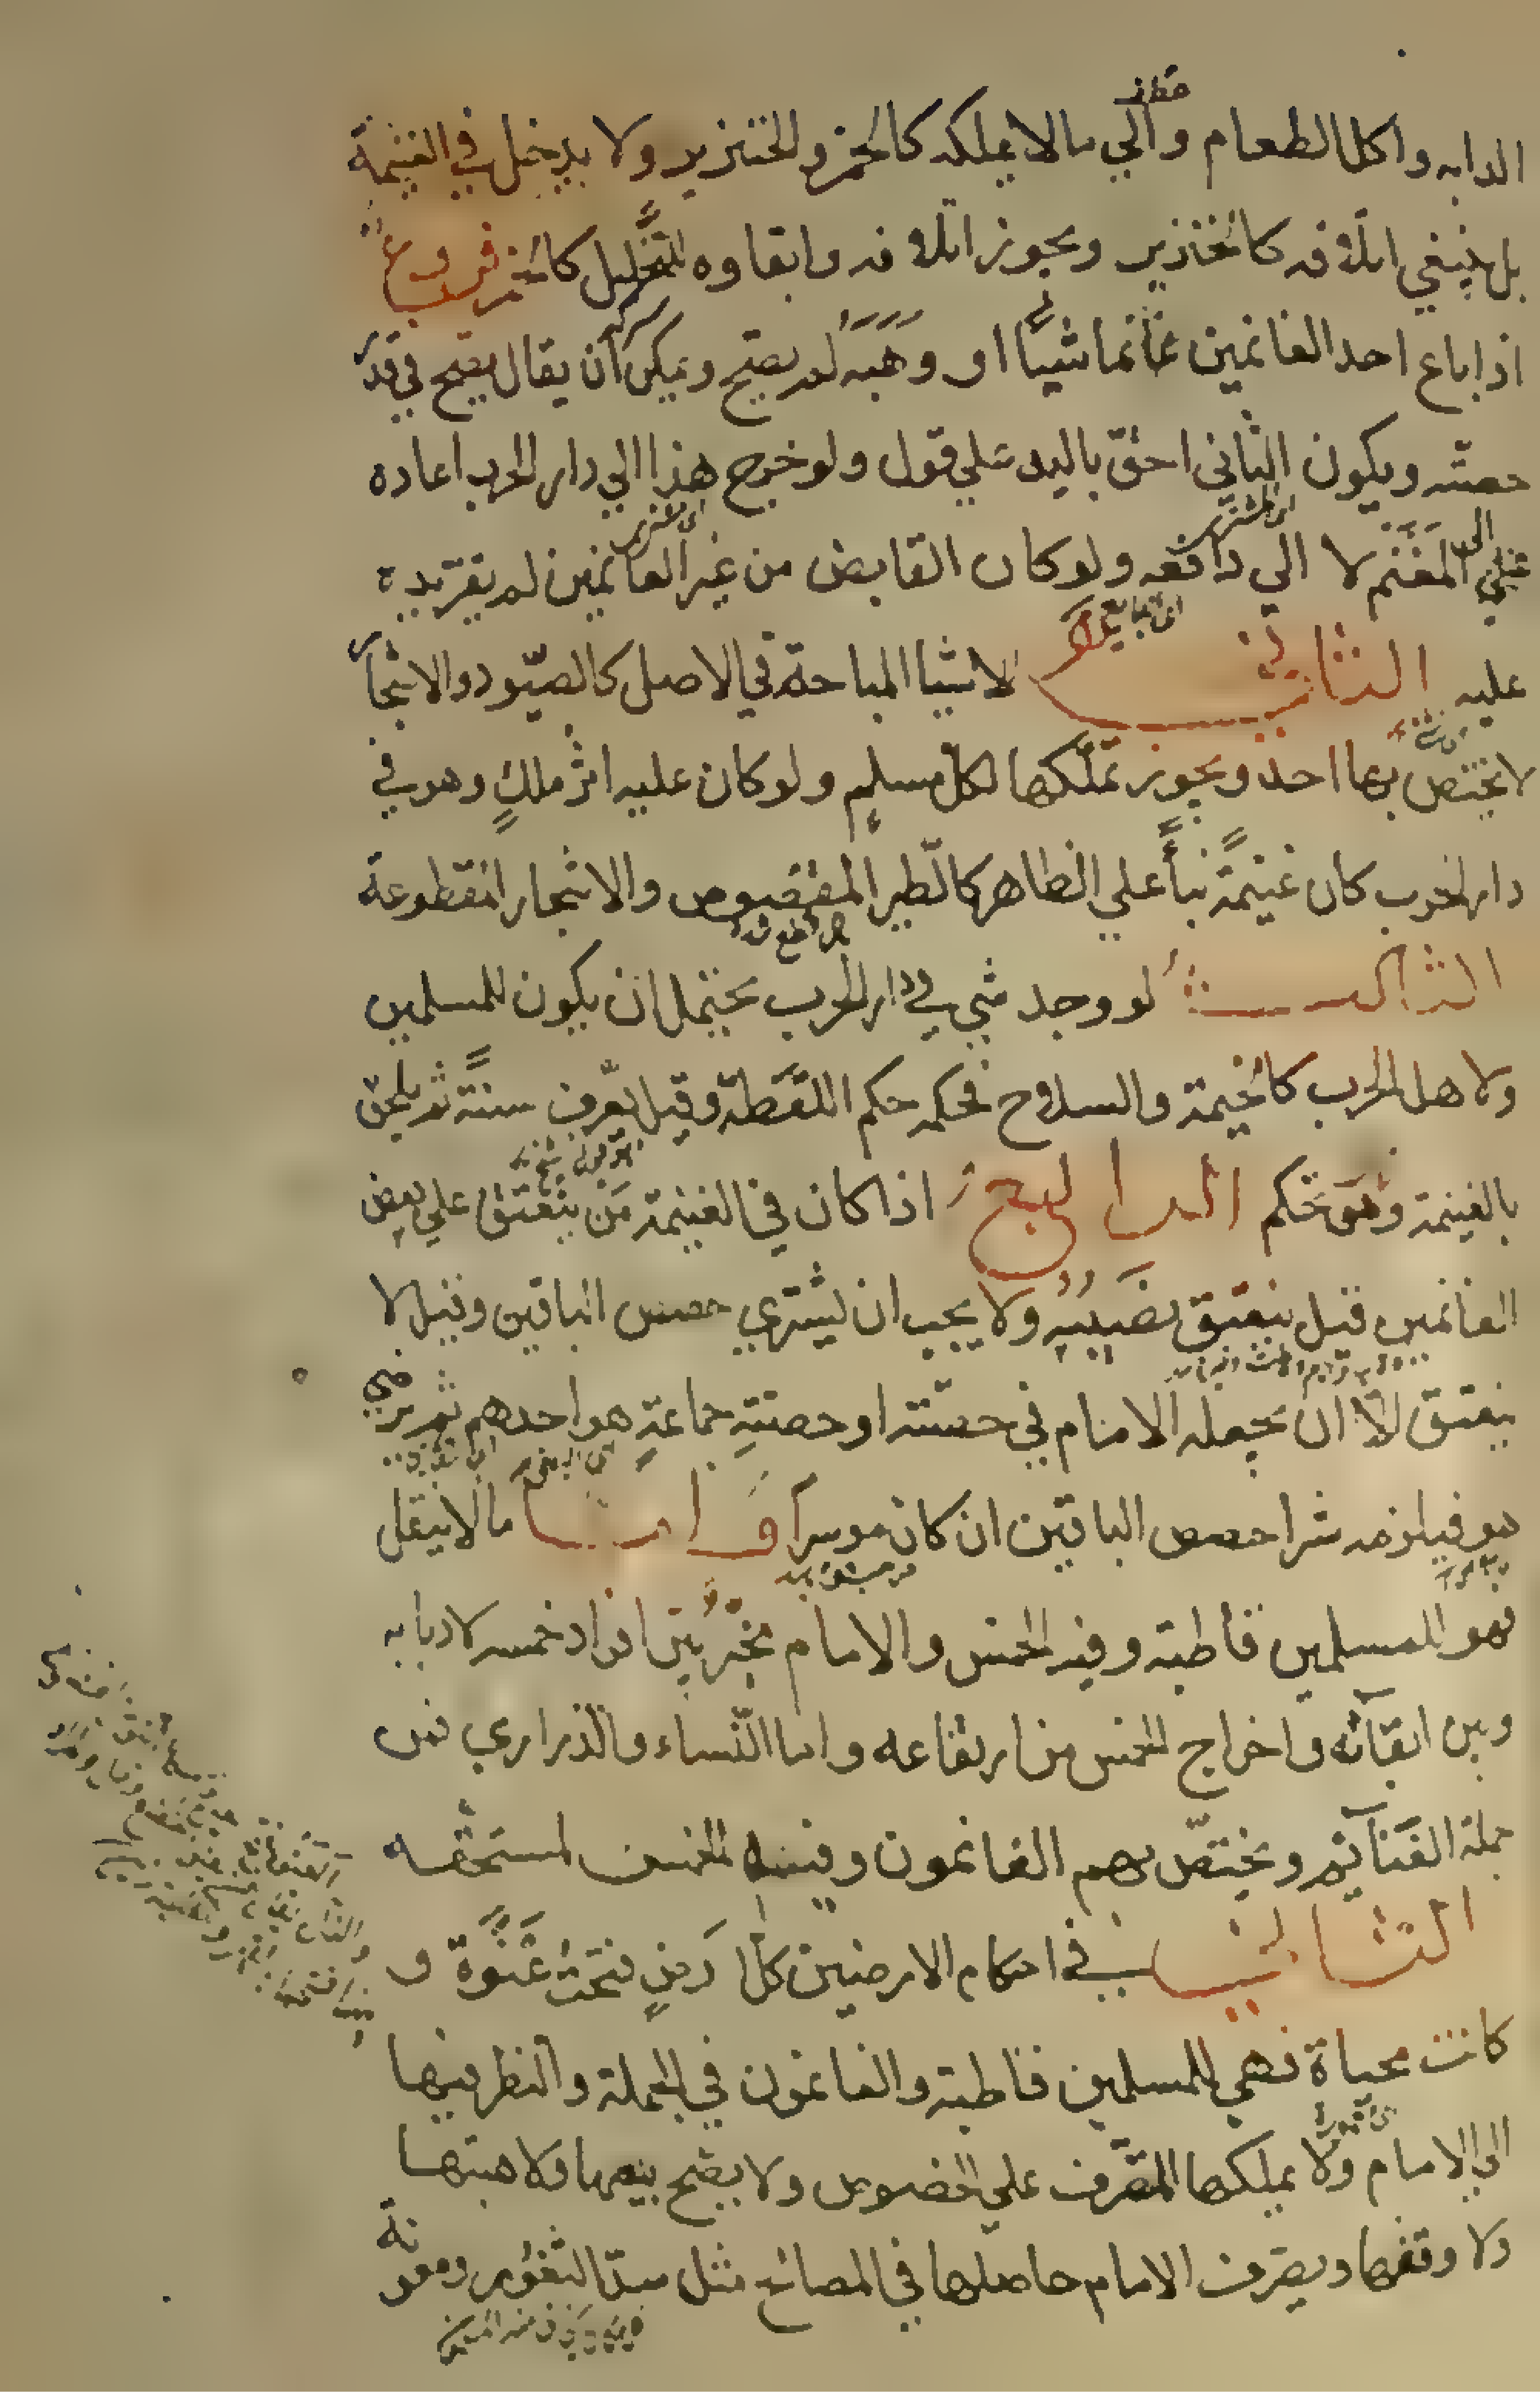 الدابه واكل الطعام والي مالا يملكه كالخمر والخنزير ولا يدخل في الغنيمة
بل ينبغي اتلافه كالخنزير ويجوز اتلافه وابقاوه للتخليل كالخمر فروع
اذا باع احد الغانمين غانما شيئا او وهبه لم يصح ويمكن ان يقال يصح في قدر
حصته ويكون الثاني احق باليد علي قول ولو خرج هذا الي دار الحرب اعاده
علي المغنم لا الي دافعه ولو كان القابض من غير الغانمين لم يقر يده
عليه الثاني الاشيا المباحة في الاصل كالصيود والاشجار
لا يختص بها احد ويجوز تملكها لكل مسلم ولو كان عليه اثر ملك وهو في
دار الحرب كان غنيمة بنأ علي الظاهر كالطير المقصوص والاشجار المقطوعة
الثالث لو وجد شي في دار الحرب يحتمل ان يكون للمسلمين
ولاهل الحرب كالخيمة والسلاح فحكمه حكم اللقطة وقيل يعرف سنة ثم يلحق
بالغنيمة وهو تحكم الرابع اذا كان في الغنيمة من ينعتق علي بعض
الغانمين قيل ينعتق نصيبه ولا يجب ان يشتري حصص الباقين وقيل لا
ينعتق الا ان يجعله الامام في حصته او حصة جماعة هو احدهم ثم يرضي
هو فيلزمه شرا حصص الباقين ان كان موسرا واما مالا ينقل
فهو للمسلمين قاطبة وفيه الخمس والامام مخير بين افراد خمسه لاربابه
وبين ابقائه واخراج الخمس من ارتفاعه واما النساء والذراري فمن
جملة الغنائم ويختص بهم الغانمون وفيهم الخمس لمستحقه
الثاني في احكام الارضين كل ارض فتحت عنوة و
كانت محياة فهي للمسلمين قاطبة والغانمون في الجملة والنظر فيها
الي الامام ولا يملكها المتصرف علي الخصوص ولا يصح بيعها ولا هبتها
ولا وقفها ويصرف الامام حاصلها في المصالح مثل سد الثغور ومعونة